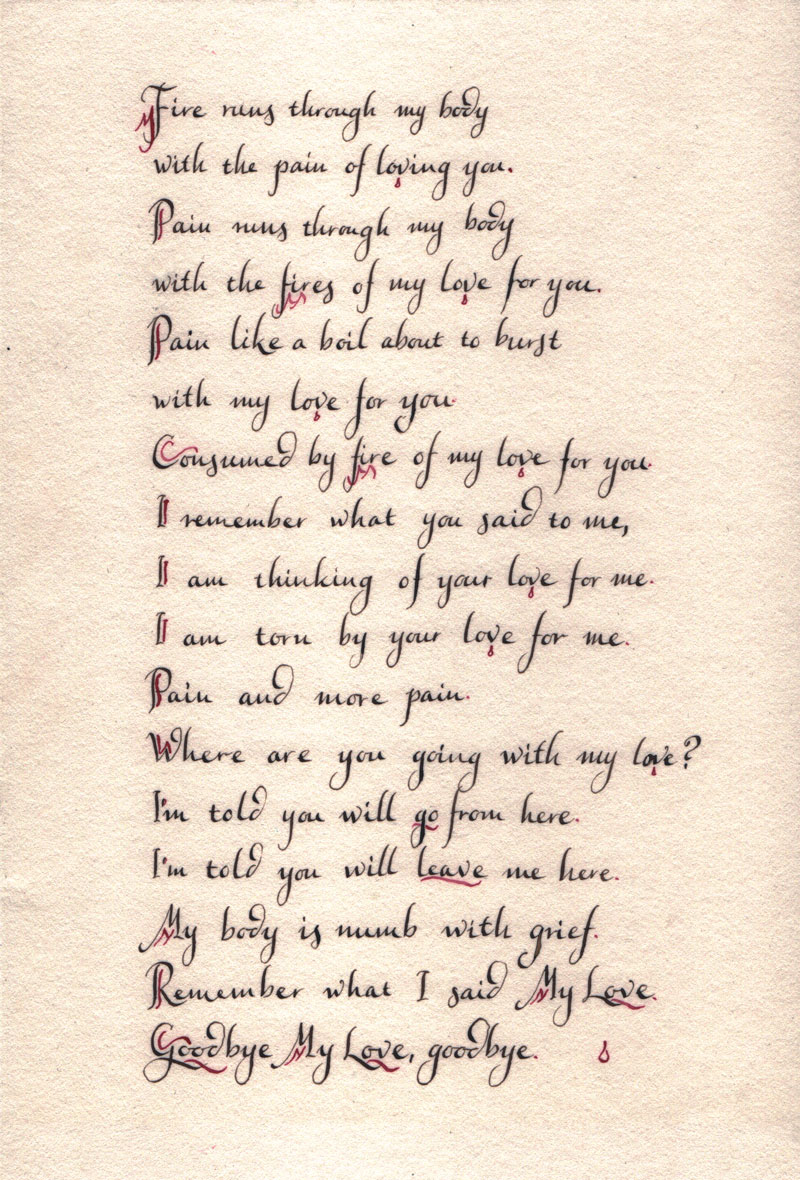 Fire runs through my body
with the pain of loving you.
Pain runs through my body
with the fires of my love for you.
Pain like a boil about to burst
with my love for you.
Consumed by fire of my love for you.
I remember what you said to me,
I am thinking of your love for me.
I am torn by your love for me.
Pain and more pain.
Where are you going with my love?
I'm told you will go from here.
I'm told you will leave me here.
My body is numb with grief.
Remember what I said My Love.
Goodbye My Love, goodbye.